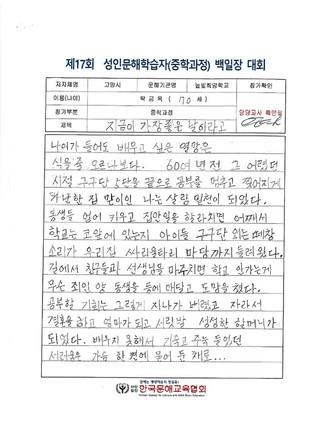 제17회 성인문해학습자(중학과정) 백일장 대회
지자체명 고양시 문해기관명 늘빛희망학교 참가확인
이름(나이) 박금옥 ( 70 세) 담당교사 확인
참가부문 중학과정
제목 지금이 가장좋은 날이라고
나이가 들어도 배우고 싶은 열망은
식을줄 모르나보다. 60여년전 그 어렵던
시절 구구단 상단을 끝으로 공부를 멈추고 찢어지게
가난한 집 맏이인 나는 살림 밑천이 되었다.
동생들 업어 키우고 집안일을 하라치면 어찌해서
학교는 코앞에 있는지 아이들 구구단 외는 떼창
소리가 우리집 싸리울타리 마당까지 들려왔다.
길에서 친구들과 선생님을 마주치면 학교 안가는게
무슨 죄인 양 동생을 등에 매달고 도망을 쳤다.
공부할 기회는 그렇게 지나가 버렸고 자라서
결혼을하고 엄마가 되고 서릿발 성성한 할머니가
되었다. 배우지 못해서 기죽고 주눅 들었던
서러움은 가슴 한 켠에 묻어 둔 채로...
한국문해교육협회